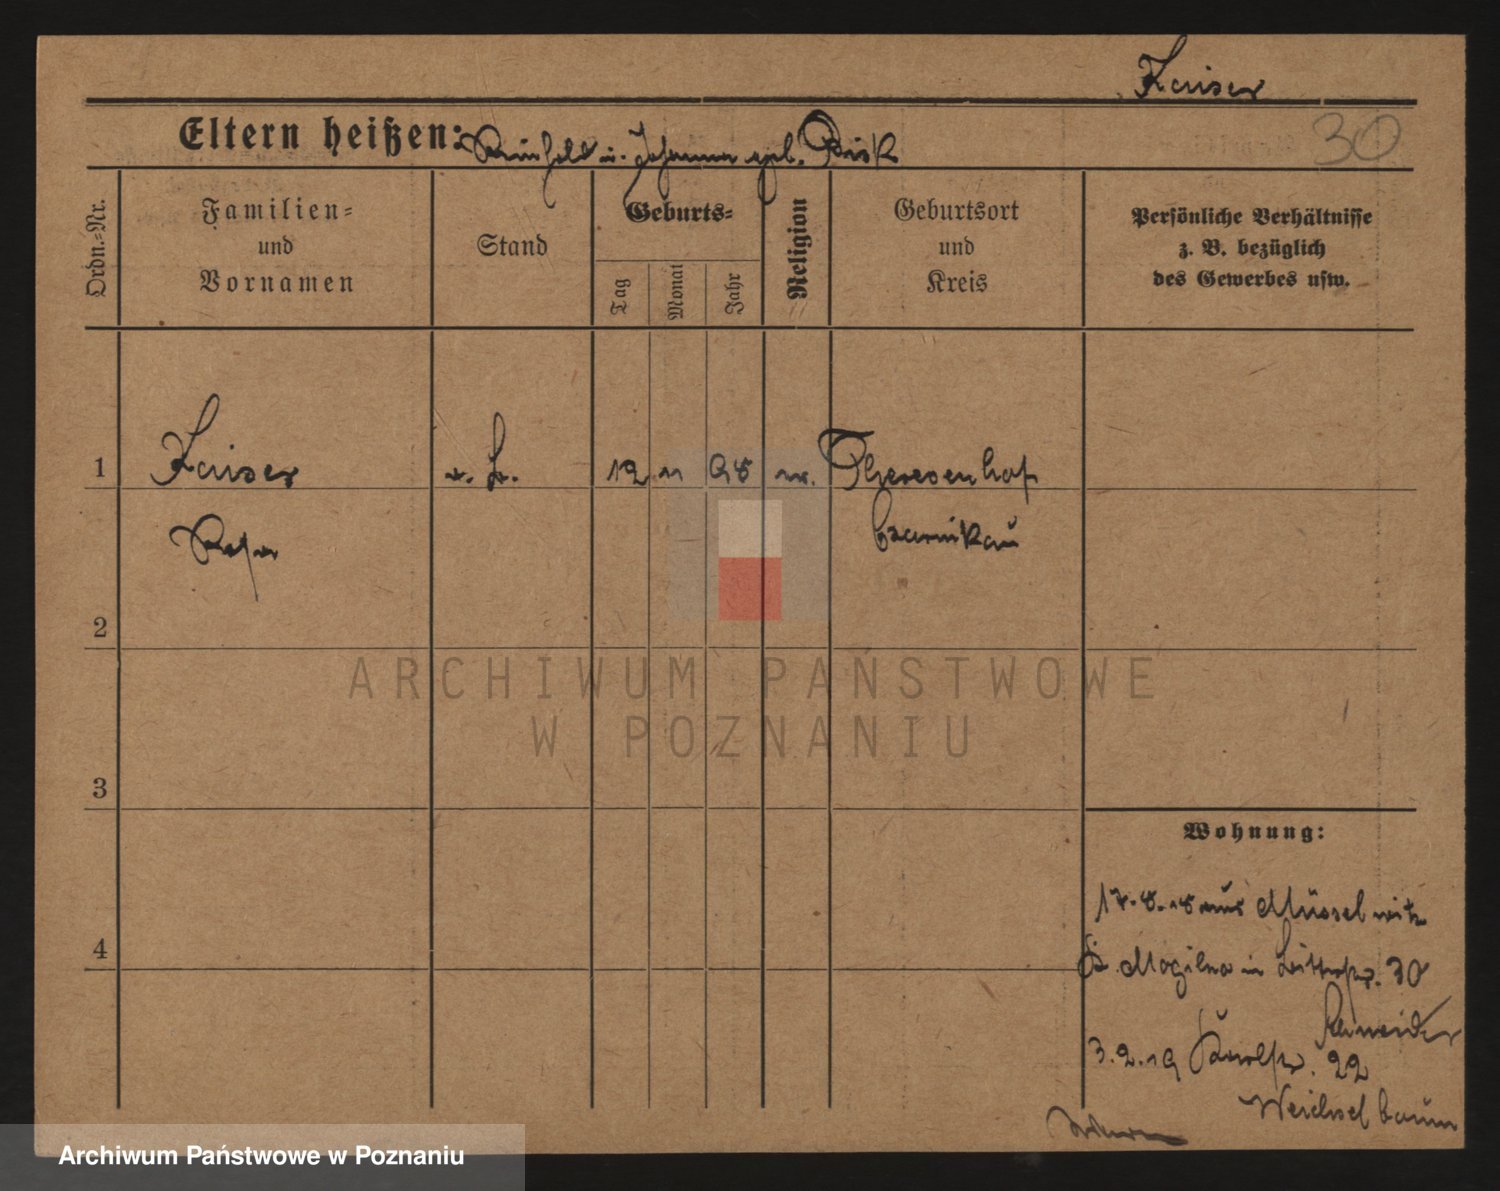 Kaiser
Eltern heißen: Reinhold u. Johanna geb. Disk
30
Ordn.-Nr.
Familien-
und
Vornamen
Stand
Geburts-
Tag
Monat
Jahr
Religion
Geburtsort
und
Kreis
Persönliche Verhältnisse
z. B. bezüglich
des Gewerbes usw.
1
Kaiser
12 11 98
Theresenhof
Czarnikau
2
ARCHIWUM PAŃSTWOWE
W POZNANIU
3
Wohnung:
17.8.18 aus Müsselwitz
4
Mogilno in 30
3.2.19 22
Weichselbaum
Archiwum Państwowe w Poznaniu